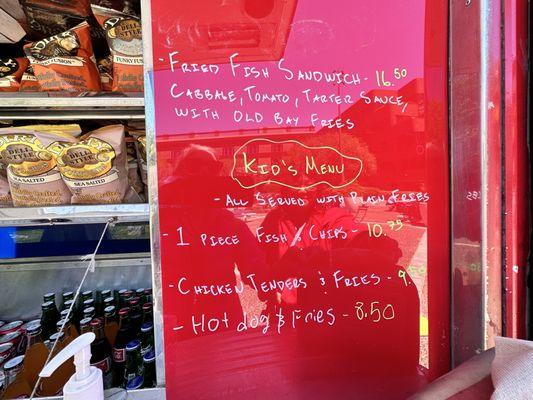 - FRIED FISH SANDWICH - 16.50
CABBAGE, TOMATO, TARTER SAUCE,
WITH OLD BAY FRIES
KID'S MENU
- ALL SERVED WITH PLAIN FRIES
- 1 PIECE FISH & CHIPS - 10.75
- CHICKEN TENDERS & FRIES - 9.50
- HOT dog & FRIES - 8.50
DELI
STYLE
FUNKY FUSION
DELI
STYLE
SEA SALTED
SEA SALTED